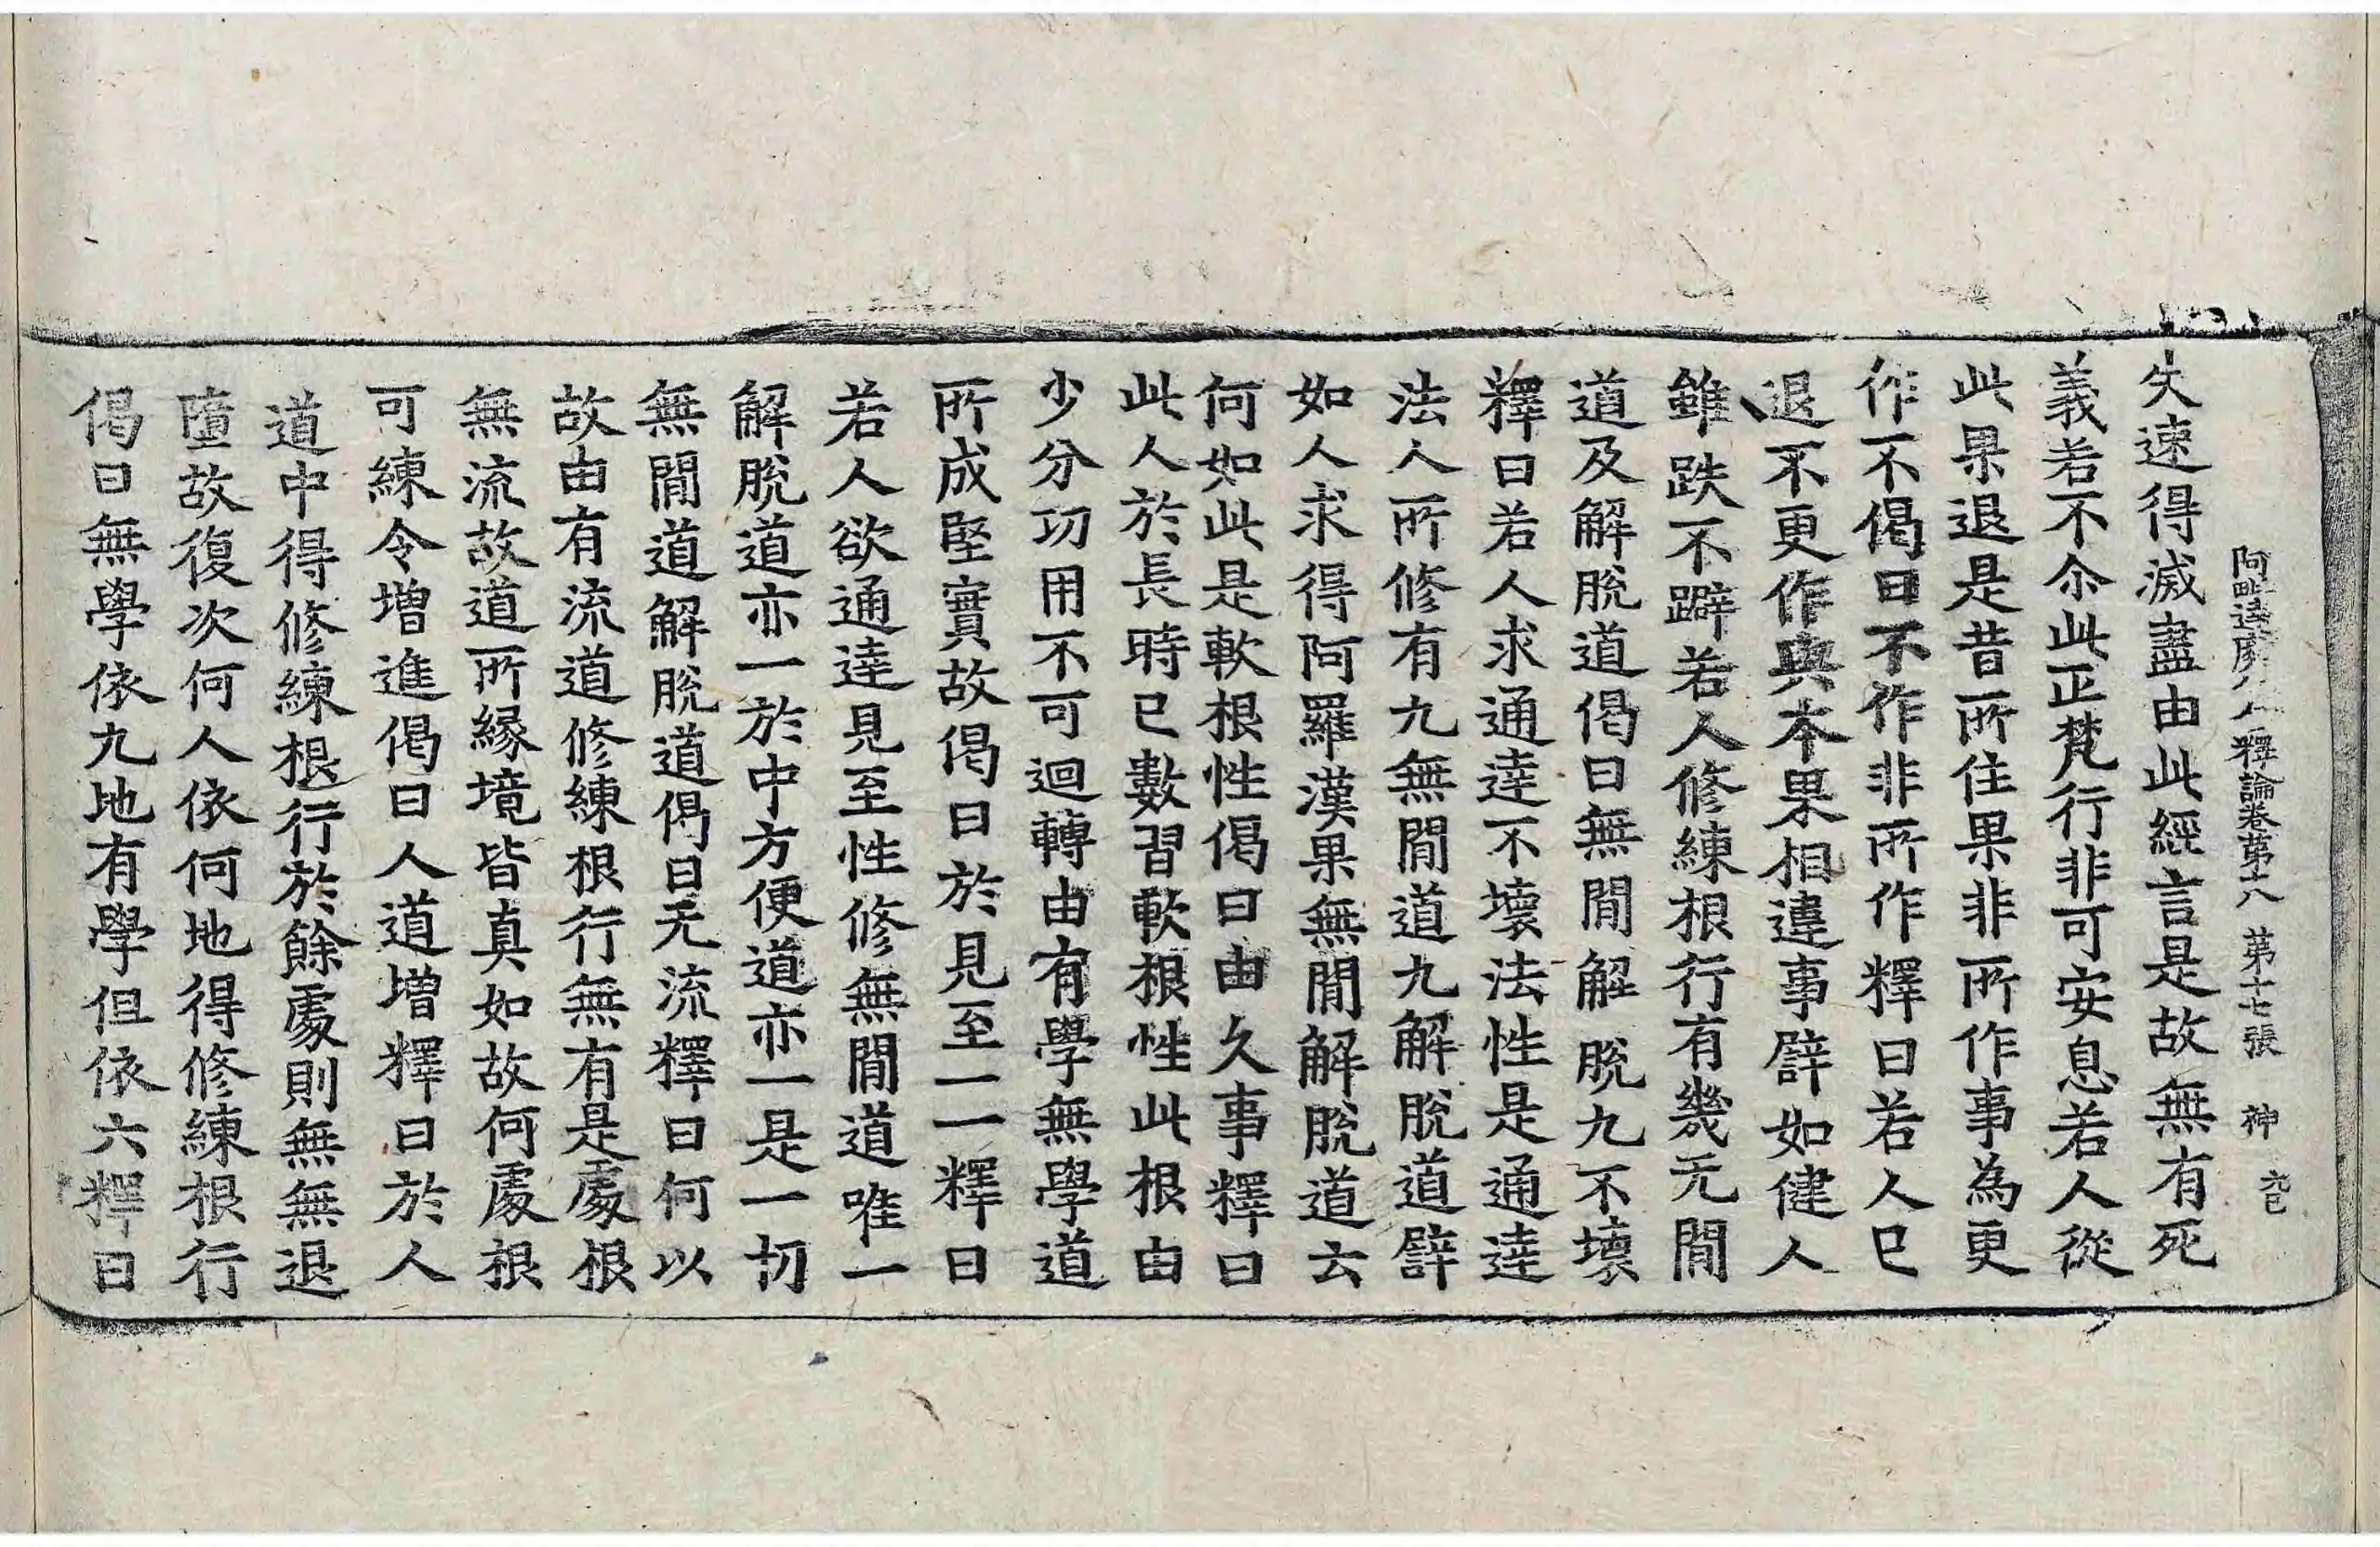 阿毗達磨倶舍釋論卷第十八 第十七張 神
失速得滅盡由此經言是故無有死
義若不尒此正梵行非可安息若人從
此果退是昔所住果非所作事為更
作不偈曰不作非所作釋曰若人已
退不更作與本果相違事譬如健人
雖跌不躃若人修練根行有幾无閒
道及解脫道偈曰無閒解脫九不壞
釋曰若人求通達不壞法性是通達
法人所修有九無閒道九解脫道譬
如人求得阿羅漢果無閒解脫道云
何如此是軟根性偈曰由久事釋曰
此人於長時已數習軟根性此根由
少分功用不可迴轉由有學無學道
所成堅實故偈曰於見至一一釋曰
若人欲通達見至性修無閒道唯一
解脫道亦一於中方便道亦一是一切
無閒道解脫道偈曰无流釋曰何以
故由有流道修練根行無有是處根
無流故道所縁境皆真如故何處根
可練令增進偈曰人道增釋曰於人
道中得修練根行於餘處則無無退
墮故復次何人依何地得修練根行
偈曰無學依九地有學但依六釋曰